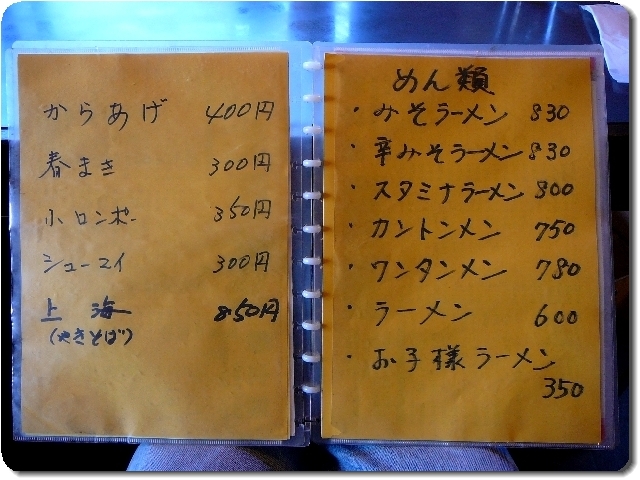 からあげ 400円
春まき 300円
小ロンポー 350円
シューマイ 300円
上海 850円
(やきそば)
めん類
・みそラーメン 830
・辛みそラーメン 830
・スタミナラーメン 800
・カントンメン 750
・ワンタンメン 780
・ラーメン 600
・お子様ラーメン
350